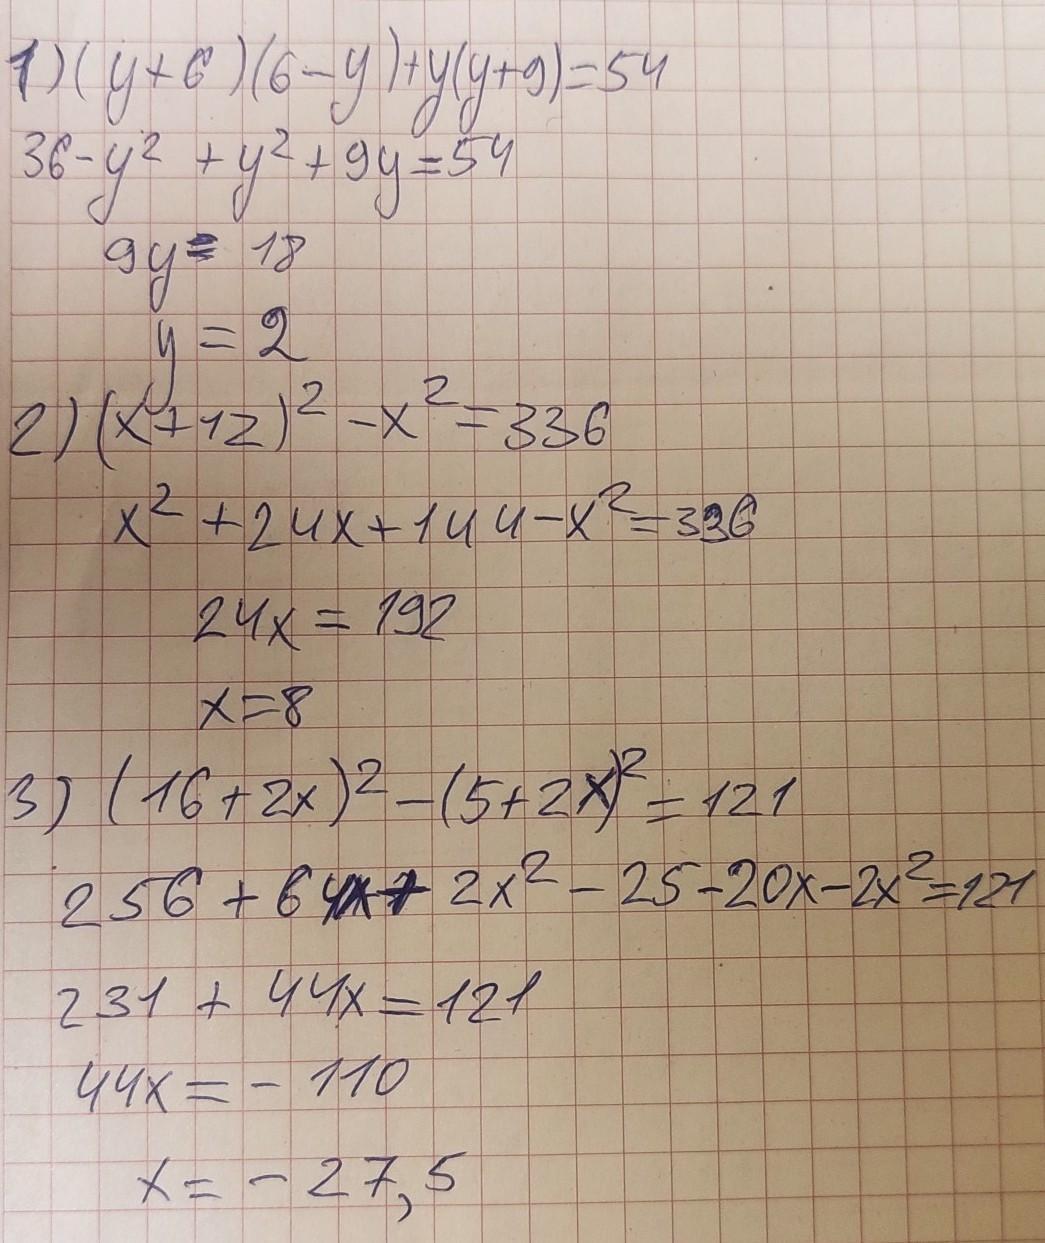 1) (y+6)(6-y)+y(y+9)=54
36-y² +y²+9y=54
9y= 18
y = 2
2) (x+12)² -x²=336
x² +24x+144-x²=336
24x = 192
x=8
3) (16+2x)² -(5+2x)² =121
256 + 64x+ 2x² - 25-20x-2x²=121
231 + 44x=121
44x= - 110
x= - 27,5